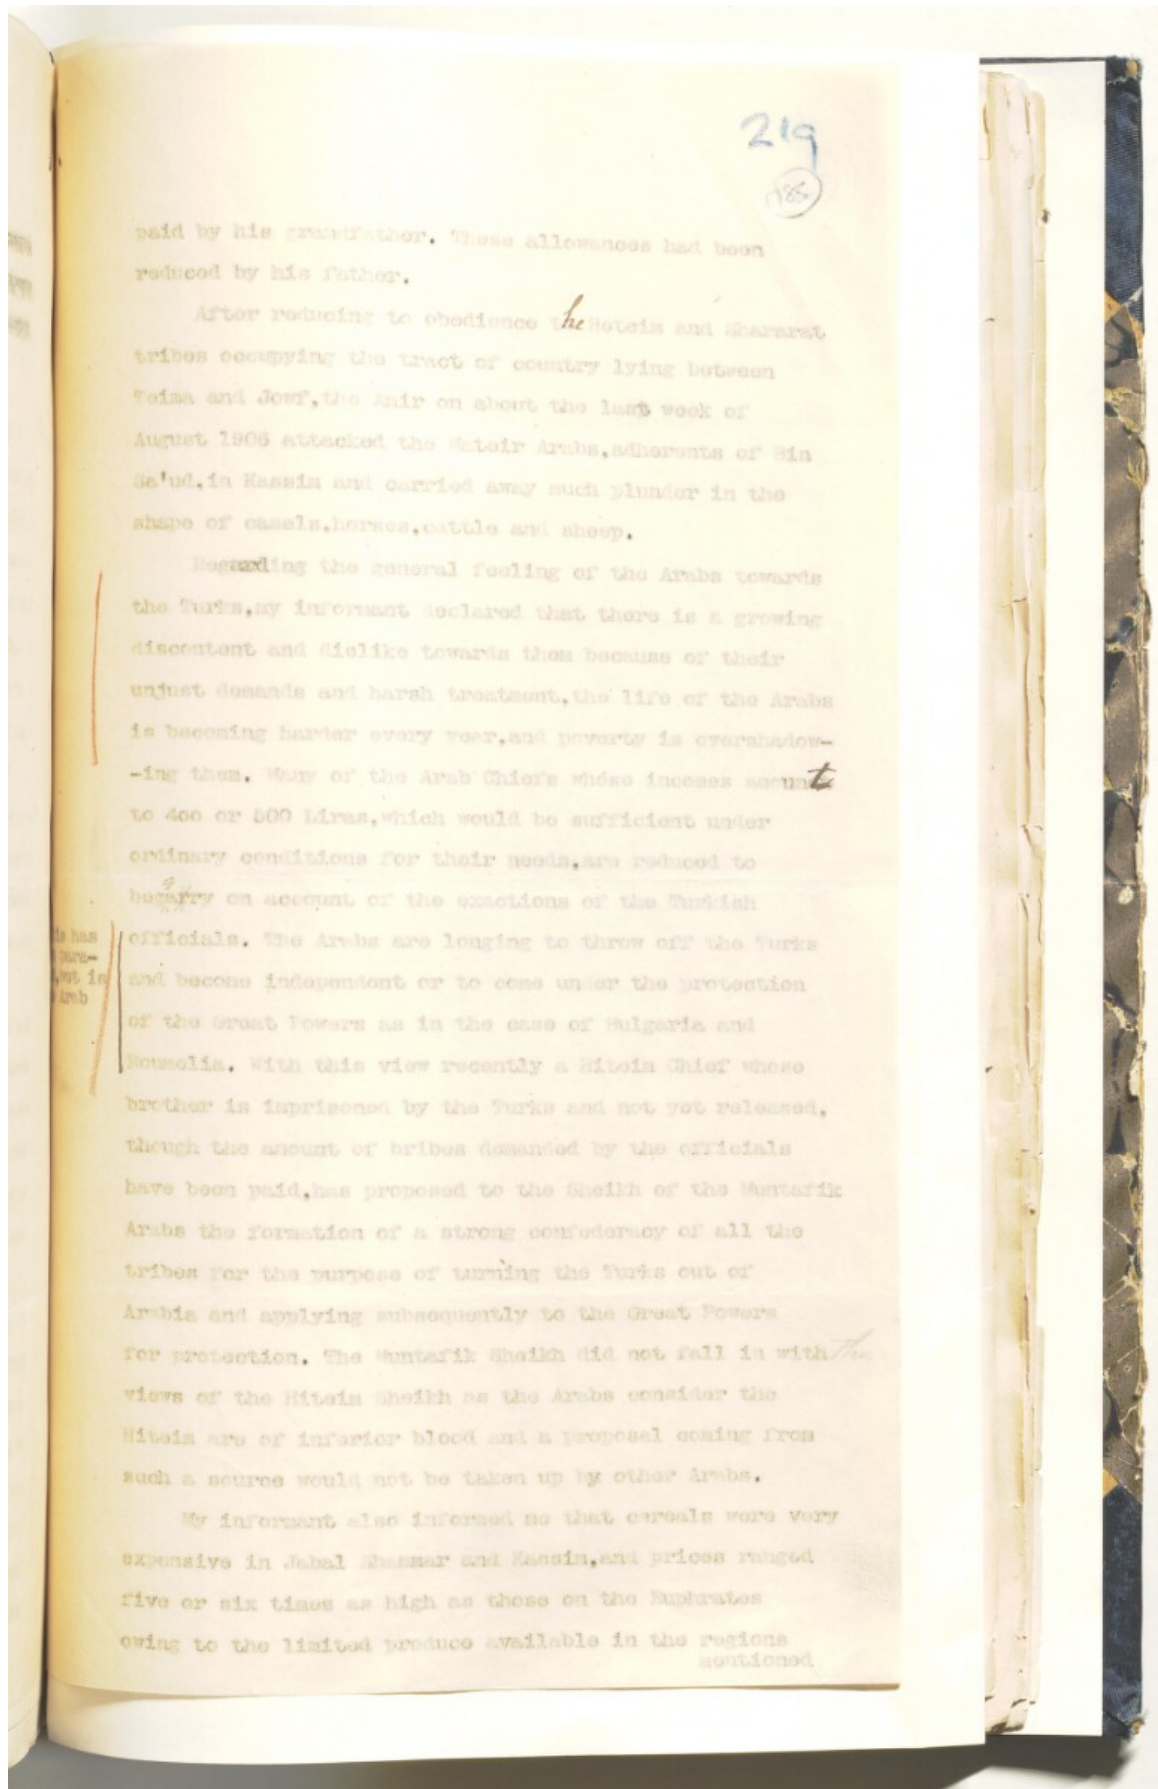 219
185
paid by his grandfather. These allowances had been
reduced by his father.
After reducing to obedience the Hoteim and Shararat
tribes occupying the tract of country lying between
Teima and Jowf,the Amir on about the last week of
August 1906 attacked the Mateir Arabs,adherents of Bin
Sa'ud,in Kassim and carried away such plunder in the
shape of camels,horses,cattle and sheep.
Regarding the general feeling of the Arabs towards
the Turks,my informant declared that there is a growing
discontent and dislike towards them because of their
unjust demands and harsh treatment,the life of the Arabs
is becoming harder every year,and poverty is overshadow-
-ing them. Many of the Arab Chiefs whose incomes amount
to 4oo or 500 Liras,which would be sufficient under
ordinary conditions for their needs,are reduced to
on account of the exactions of the Turkish
officials. The Arabs are longing to throw off the Turks
and become independent or to come under the protection
of the Great Powers as in the case of Bulgaria and
Roumelia. With this view recently a Hiteim Chief whose
brother is imprisoned by the Turks and not yet released,
though the amount of bribes demanded by the officials
have been paid,has proposed to the Sheikh of the Muntafik
Arabs the formation of a strong confederacy of all the
tribes for the purpose of turning the Turks out of
Arabia and applying subsequently to the Great Powers
for protection. The Muntafik Sheikh did not fall in with the
views of the Hiteim Sheikh as the Arabs consider the
Hiteim are of inferior blood and a proposal coming from
such a source would not be taken up by other Arabs.
My informant also informed me that cereals were very
expensive in Jabal Shammar and Kassim,and prices ranged
five or six times as high as those on the Euphrates
owing to the limited produce available in the regions
mentioned
is has
para-
,but is
Arab